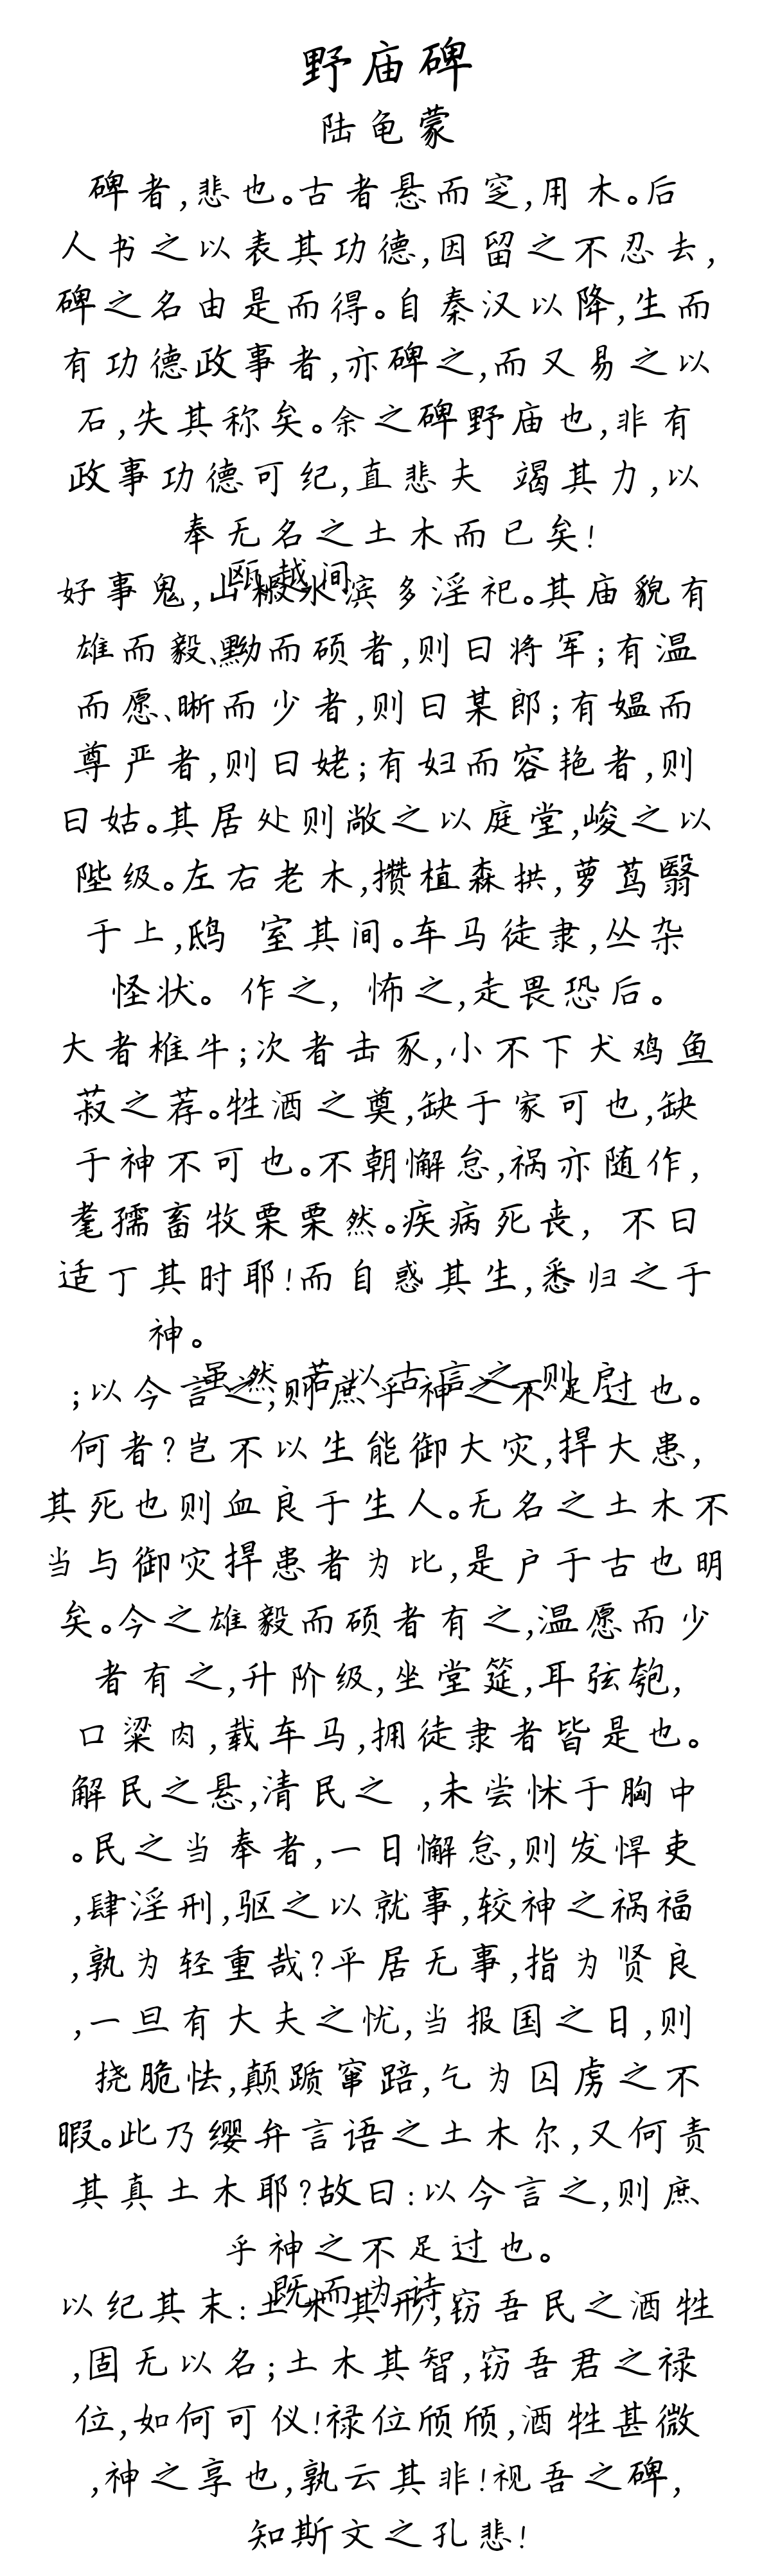 野庙碑
陆龟蒙
碑者,悲也。古者悬而窆,用木。后
人书之以表其功德,因留之不忍去,
碑之名由是而得。自秦汉以降,生而
有功德政事者,亦碑之,而又易之以
石,失其称矣。余之碑野庙也,非有
政事功德可纪,直悲夫 竭其力,以
奉无名之土木而已矣!
瓯越间
好事鬼,山椒水滨多淫祀。其庙貌有
雄而毅、黝而硕者,则曰将军;有温
而愿、晰而少者,则曰某郎;有媪而
尊严者,则曰姥;有妇而容艳者,则
曰姑。其居处则敞之以庭堂,峻之以
陛级。左右老木,攒植森拱,萝茑翳
于上,鸱 室其间。车马徒隶,丛杂
怪状。作之,怖之,走畏恐后。
大者椎牛;次者击豕,小不下犬鸡鱼
菽之荐。牲酒之奠,缺于家可也,缺
于神不可也。不朝懈怠,祸亦随作,
耄孺畜牧栗栗然。疾病死丧,不曰
适丁其时耶!而自惑其生,悉归之于
神。
虽然,若以古言之,则戾
;以今言之,则庶乎神之不足过也。
何者?岂不以生能御大灾,捍大患,
其死也则血良于生人。无名之土木不
当与御灾捍患者为比,是户于古也明
矣。今之雄毅而硕者有之,温愿而少
者有之,升阶级,坐堂筵,耳弦匏,
口粱肉,载车马,拥徒隶者皆是也。
解民之悬,清民之 ,未尝怵于胸中
。民之当奉者,一日懈怠,则发悍吏
,肆淫刑,驱之以就事,较神之祸福
,孰为轻重哉?平居无事,指为贤良
,一旦有大夫之忧,当报国之日,则
挠脆怯,颠踬窜踣,乞为囚虏之不
暇。此乃缨弁言语之土木尔,又何责
其真土木耶?故曰:以今言之,则庶
乎神之不足过也。
既而为诗
以纪其末:土木其形,窃吾民之酒牲
,固无以名;土木其智,窃吾君之禄
位,如何可仪!禄位颀颀,酒牲甚微
,神之享也,孰云其非!视吾之碑,
知斯文之孔悲!